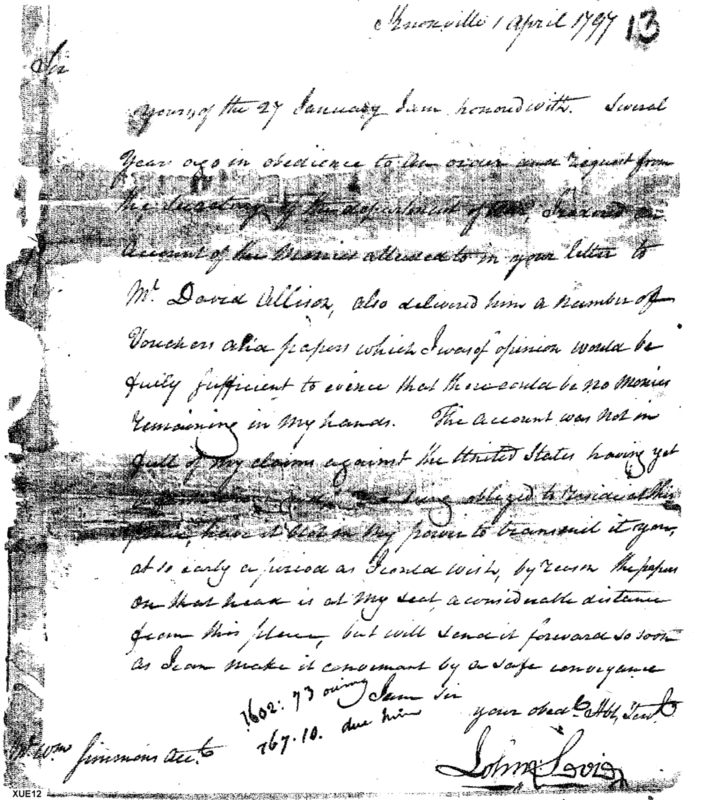 Knoxville 1 April 1797 13
Sir
Yours of the 27 January I am honored with. Several
Years ago in obedience to an order and request from
the Secretary of the department of War, I
account of the Monies alluded to in your letter to
Mr. David Allison, also delivered him a number of
Vouchers and papers which I was of opinion would be
fully sufficient to evence that there could be no Monies
remaining in my hands. The Account was not in
full of my claims against the United States having yet
being obliged to reside at this
place, have it not in my power to transmit it you,
at so early a period as I could wish, by reason the papers
on that head is at my seat, a considerable distance
from this place, but will send it forward so soon
as I can make it convenient by a safe conveyance
1602:73 owing I am Sir
767.10. due him your obed. Hbl. Servt.
Mr. Wm. Simmons Acct.
John Sevier
XUE12